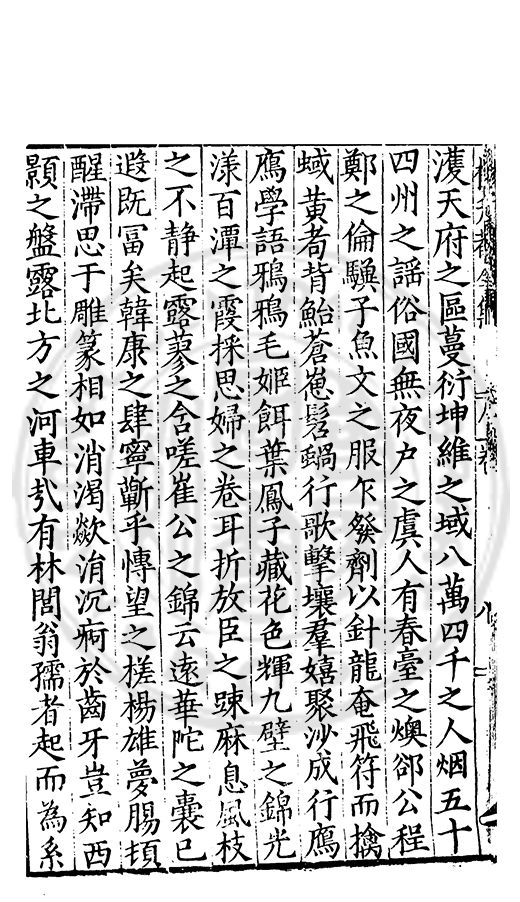 濩天府之區蔓衍坤維之域八萬四千之人烟五十
四州之謡俗國無夜户之虞人有春臺之燠郤公程
鄭之倫騻子魚文之服乍發劑以針龍奄飛符而擒
蜮黄耇背鮐蒼崽髫鍋行歌擊壤羣嬉聚沙成行鴈
鴈學語鴉鴉毛姬餌葉鳳子藏花色輝九壁之錦光
漾百潭之霞採思婦之卷耳折放臣之疎麻息風枝
之不静起露蓼之含嗟崔公之錦云逺華陀之囊已
遐旣冨矣韓康之肆寧蘄乎愽望之槎楊雄夢腸頓
醒滯思于雕篆相如消渴歘消沉痾於齒牙豈知西
顥之盤露北方之河車㢤有林閭翁孺者起而為系